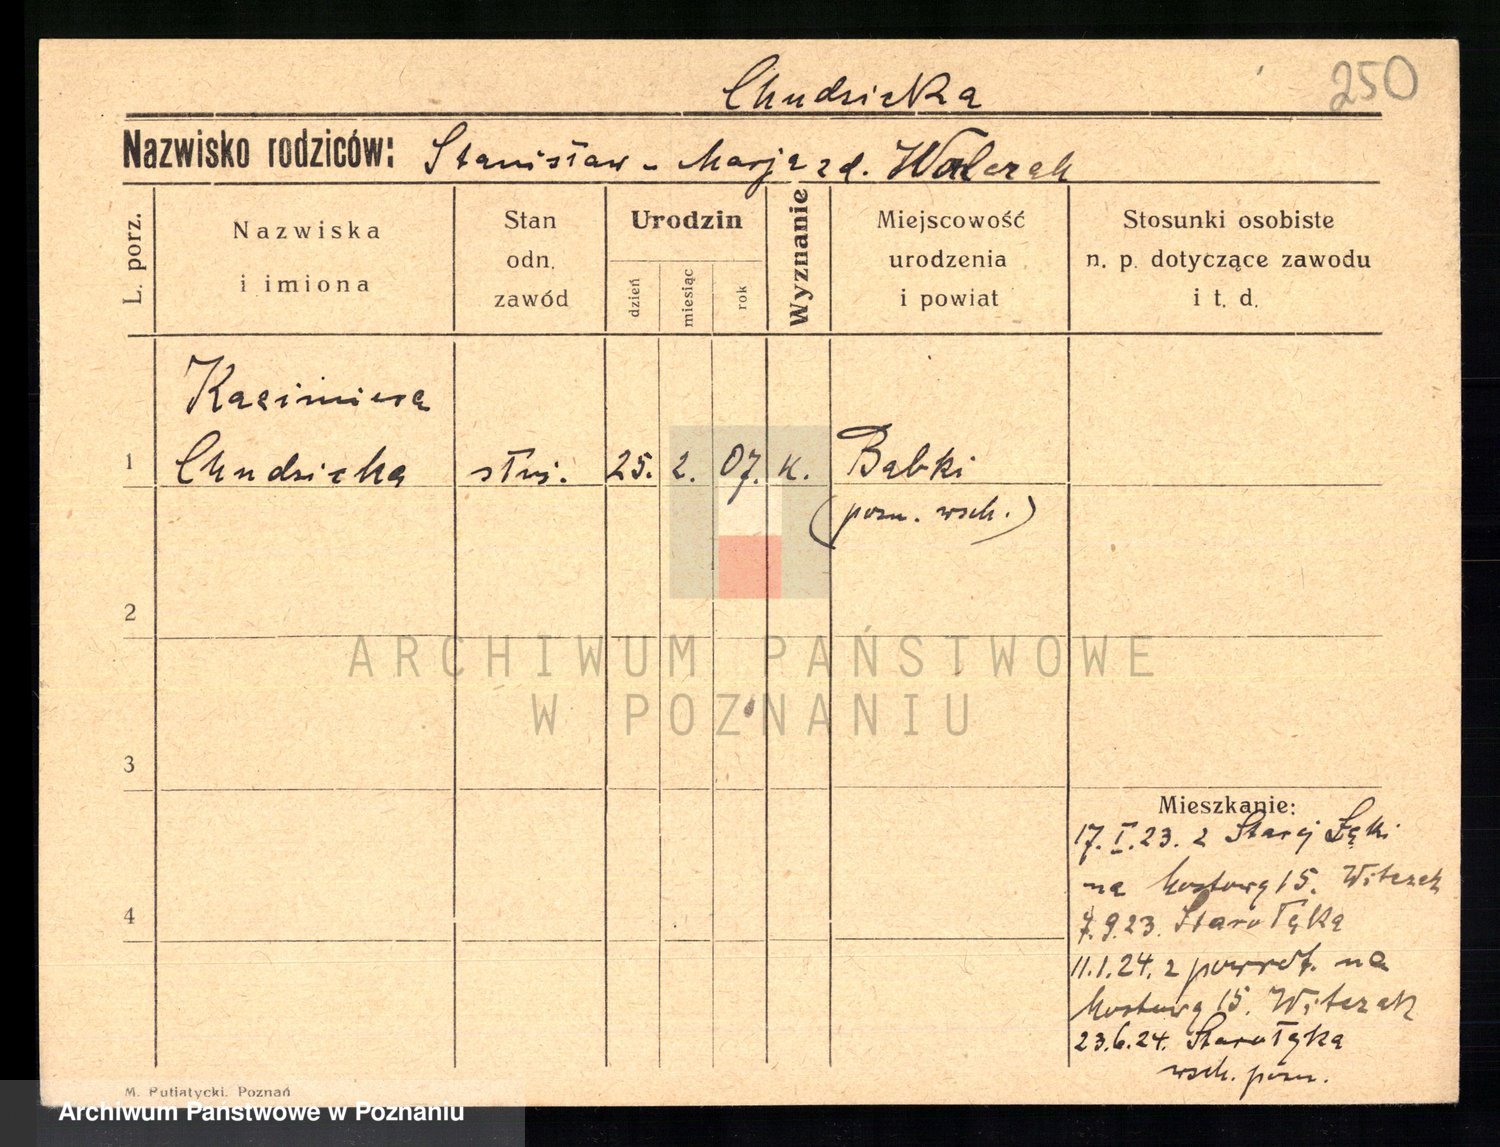 250
Chudzicka
Nazwisko rodziców: Stanisław - Marja z d. Walczak
L. porz.
Nazwiska i imiona
Stan odn. zawód
Urodzin
dzień
miesiąc
rok
Wyznanie
Miejscowość urodzenia i powiat
Stosunki osobiste n. p. dotyczące zawodu i t. d.
Kazimiera
1 Chudzicka służ. 25. 2. 07. k. Babki
(pozn. wsch.)
2
ARCHIWUM PAŃSTWOWE
W POZNANIU
3
Mieszkanie:
17. I. 23. z Starej Łęki
na Mostową 15. Witczak
4
7.9.23. Starołęka
11.1.24. z powrot. na
Mostową 15. Witczak
23.6.24. Starołęka
wsch. pozn.
M. Putiatycki. Poznań
Archiwum Państwowe w Poznaniu